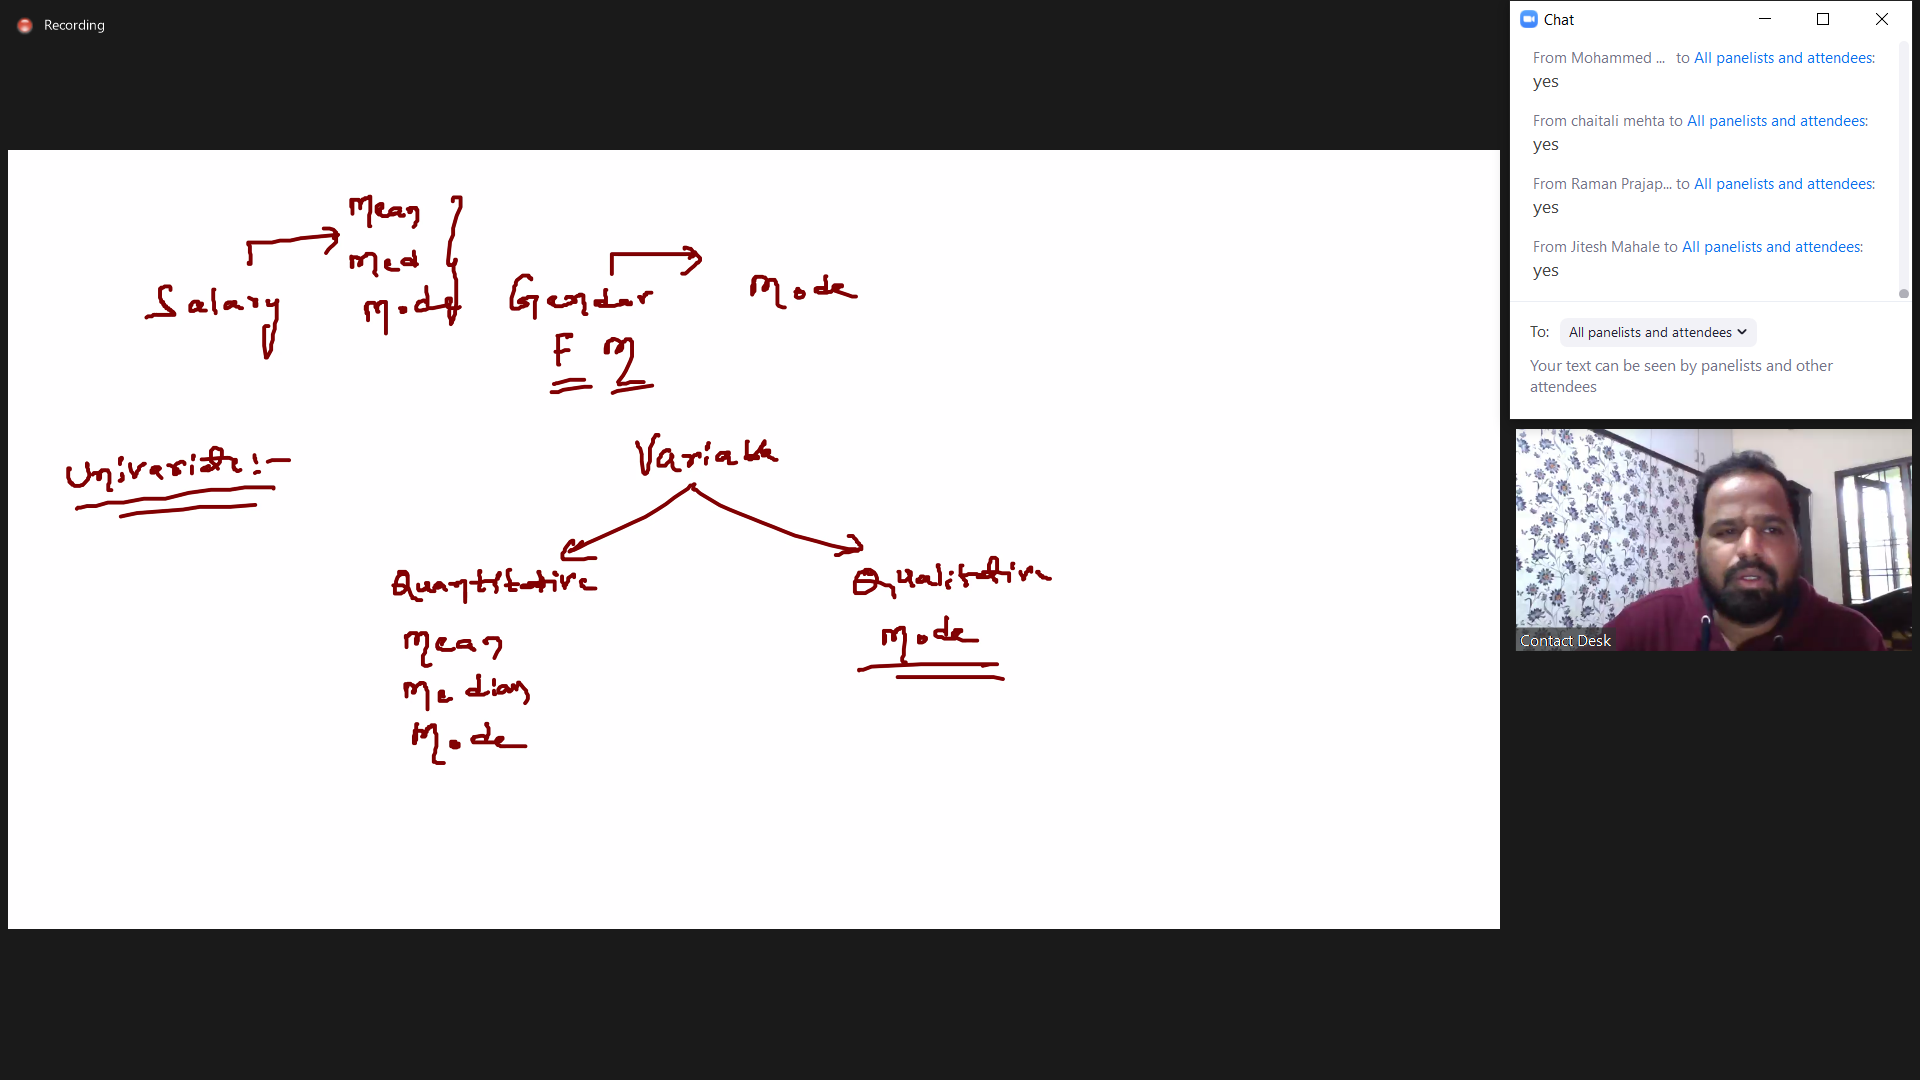 Recording
Mean
Med
Mode
Salary
Gendar
Mode
F M
Univariate:-
Variable
Quantitative
Qualitative
Mean
Median
Mode
Mode
Chat
From Mohammed ... to All panelists and attendees:
yes
From chaitali mehta to All panelists and attendees:
yes
From Raman Prajap... to All panelists and attendees:
yes
From Jitesh Mahale to All panelists and attendees:
yes
To: All panelists and attendees
Your text can be seen by panelists and other
attendees
Contact Desk